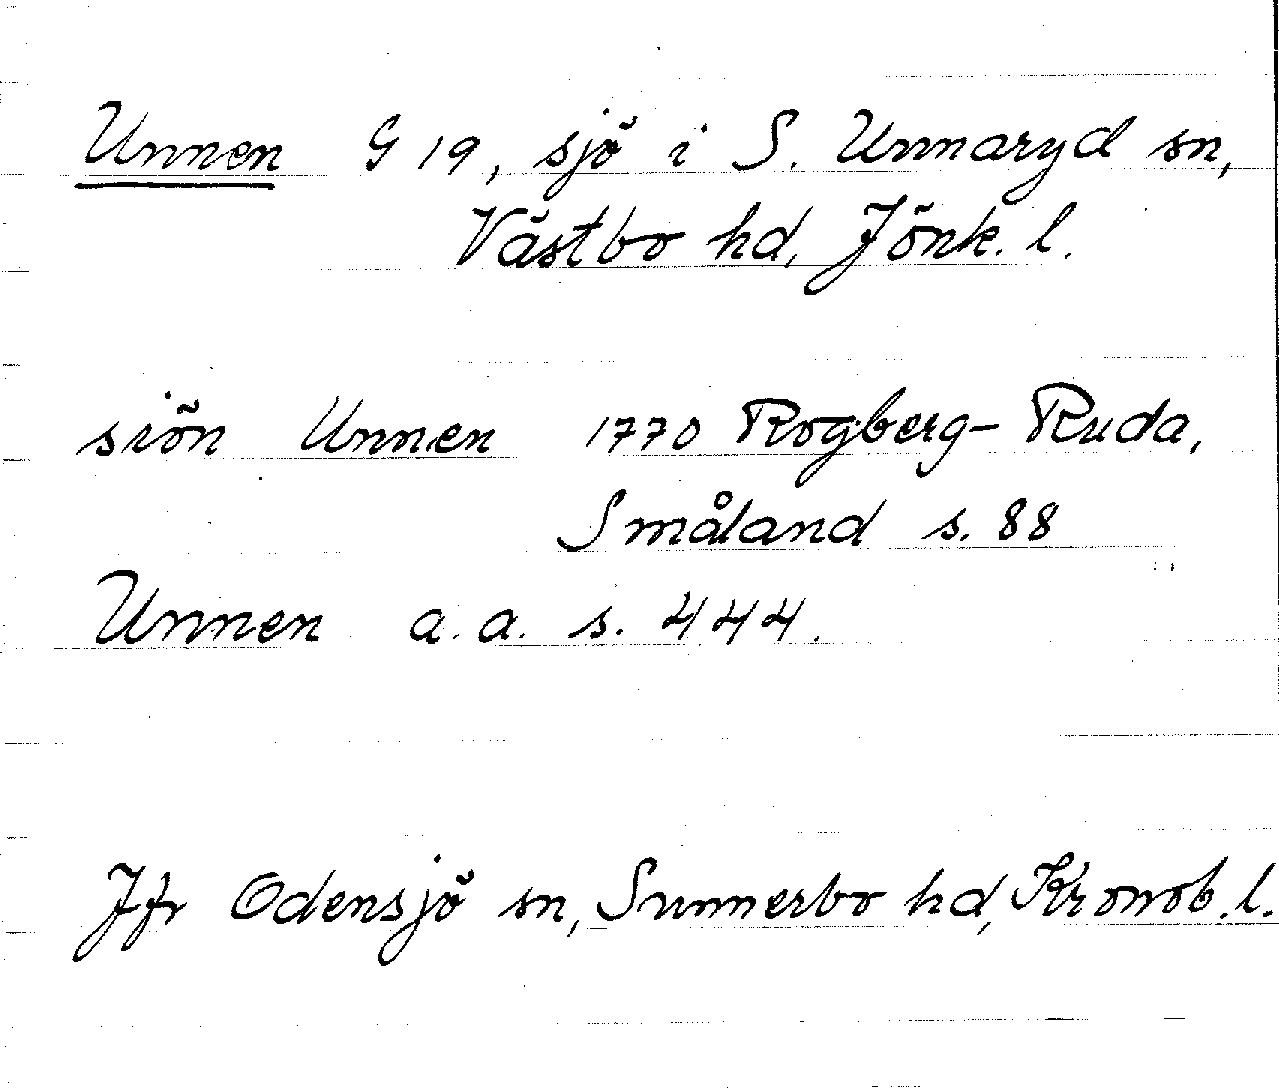 Unnen G 19, sjö i S. Unnaryd sn,
Västbo hd, Jönk. l.
siön Unnen 1770 Rogberg-Ruda,
Småland s. 88
Unnen a.a. s. 444.
Jfr Odensjö sn, Sunnerbo hd, Kronob. l.